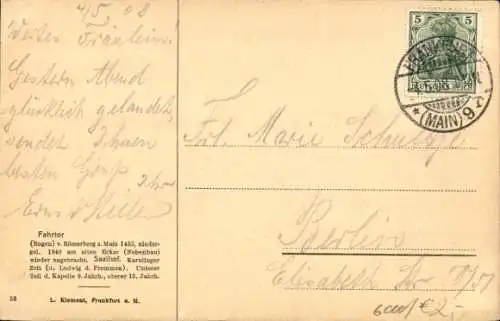 4/5 08
Wertes Fräulein!
Gestern Abend
glücklich gelandet,
sendet Ihnen
besten Gruß
Ihr
Fahrtor
(Bogen) v. Römerberg z. Main 1455, nieder-
gel. 1840 am alten Erker (Nebenbau)
wieder angebracht. Saalhof. Karolinger
Zeit (u. Ludwig d. Frommen). Unterer
Teil d. Kapelle 9. Jahrh., oberer 12. Jahrh.
58 L. Klement, Frankfurt a. M.
5 5
(MAIN) 9
Frl. Marie Schultze
Berlin
Elisabeth Str
€2,-